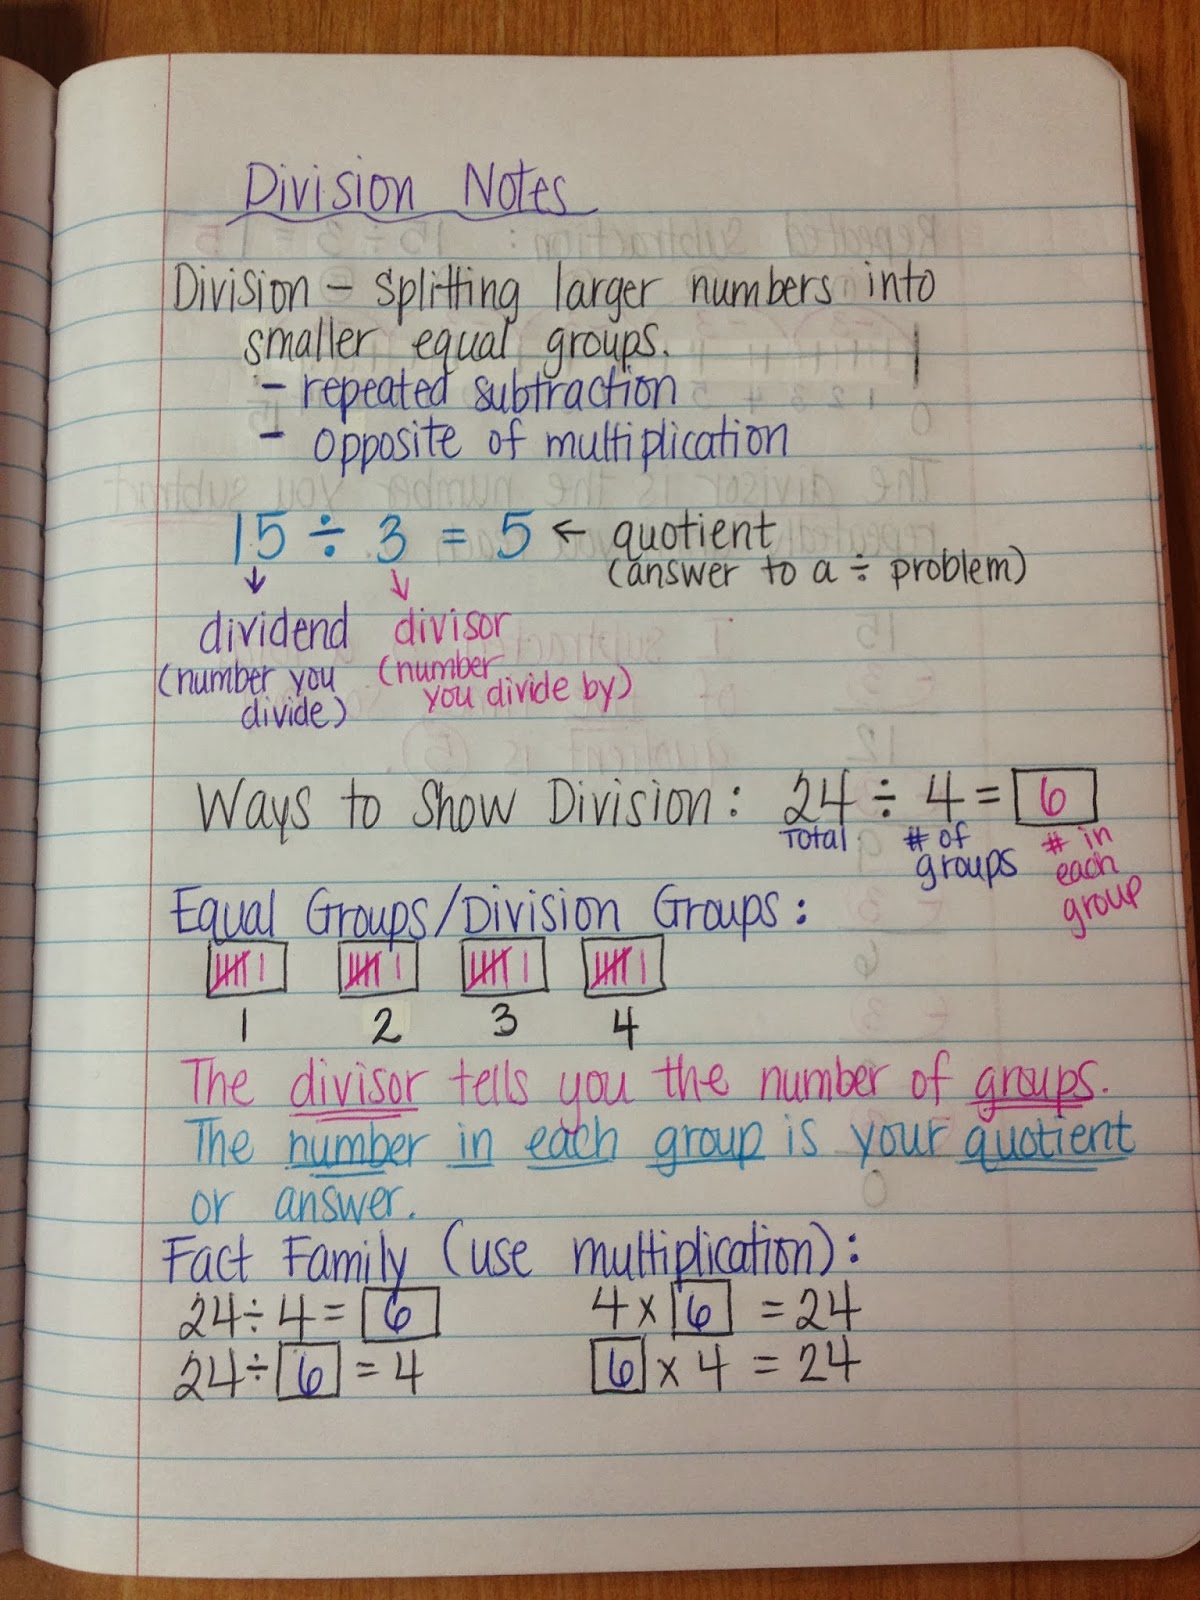 Division Notes
Division - splitting larger numbers into
smaller equal groups.
- repeated subtraction
- opposite of multiplication
15 ÷ 3 = 5 ← quotient
(answer to a ÷ problem)
↓ ↓
dividend divisor
(number you divide) (number you divide by)
Ways to Show Division: 24 ÷ 4 = 6
Total # of groups # in each group
Equal Groups/Division Groups:
1 2 3 4
The divisor tells you the number of groups.
The number in each group is your quotient
or answer.
Fact Family (use multiplication):
24 ÷ 4 = 6 4 x 6 = 24
24 ÷ 6 = 4 6 x 4 = 24